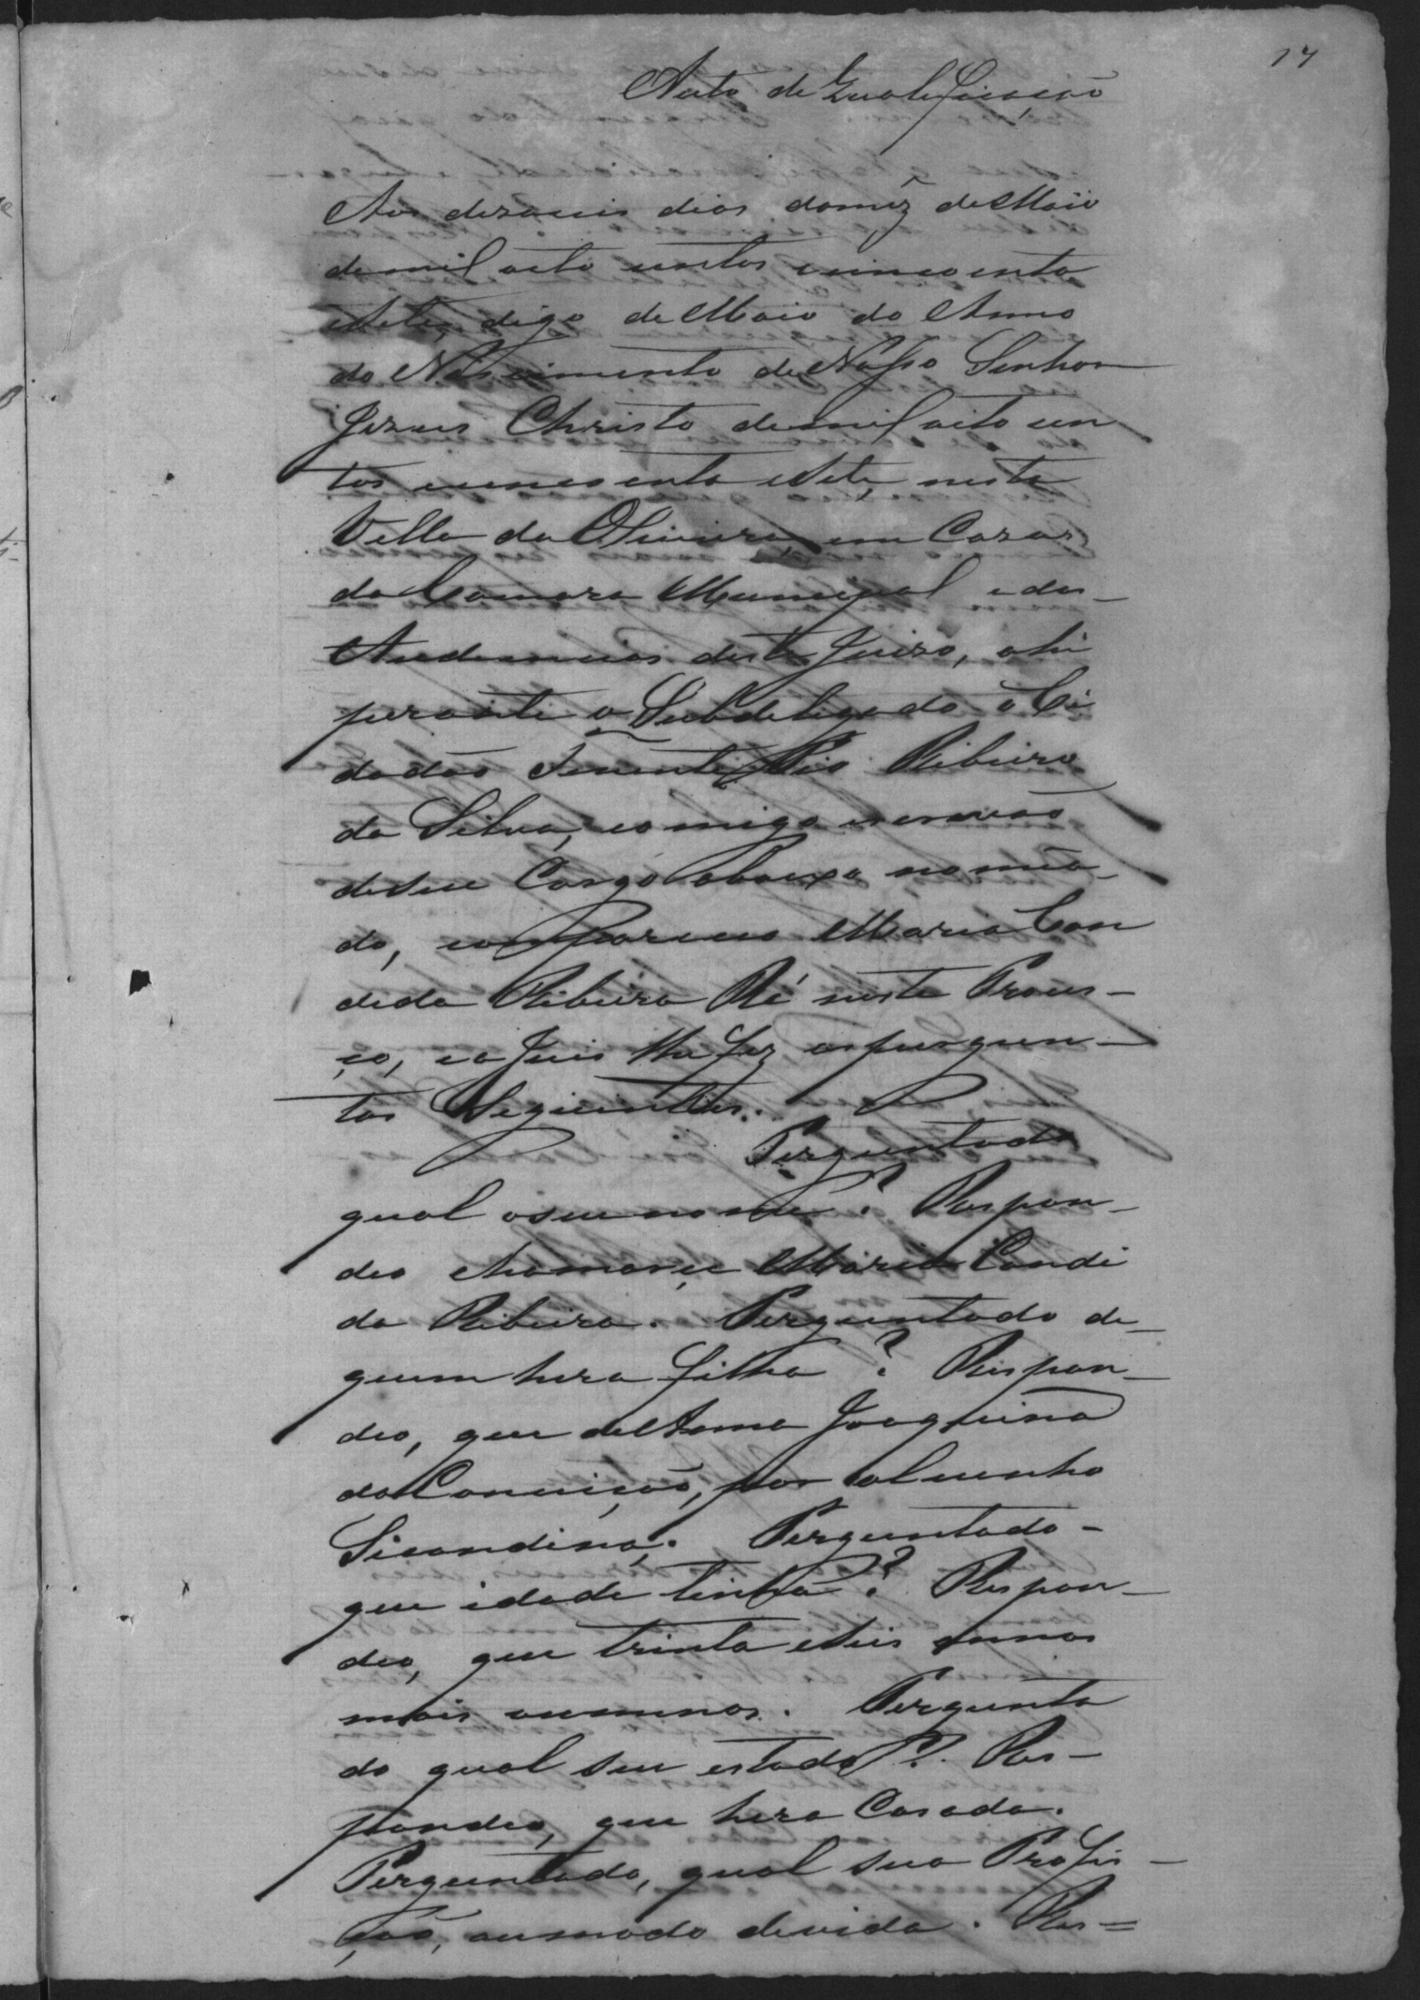 17
Auto de Qualeficação
Aos dezaceis dias do mêz de Maio
de mil oito centos cincoenta
e Sete, digo de Maio do Anno
do Nascimento de Nosso Senhor
Jezus Christo de mil oito cen
tos cincoenta e Sete, nesta
Villa da Oliveira, em Cazas
da Camara Municipal e das
Audiencias deste Juizo, ahi
perante o Subdelegado o Ci
dadão Tenente Pio Ribeiro
da Silva, comigo escrivão
de seu Cargo abaixo nomia-
do, compareceo Maria Can
dida Ribeira Ré neste Proces-
ço, e o Juis lhe fez as pergun-
tas Seguintes.
Perguntado
qual o seu nome? Respon-
deo chamarçe Maria Candi
da Ribeira. Perguntado de
quem hera filha? Respon-
deo, que de Anna Joaquina
da Conceição, por alcunha
Sicandina. Perguntado-
que idade tinha? Respon-
deo, que trinta e Seis annos
mais ou menos. Pergunta
do qual seu estado? Res-
pondeo, que hera Casada.
Perguntado, qual sua Profis-
ção, ou modo de vida. Res=